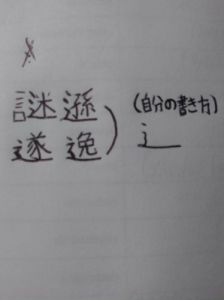 謎遜
遂逸
(自分の書き方)
辶